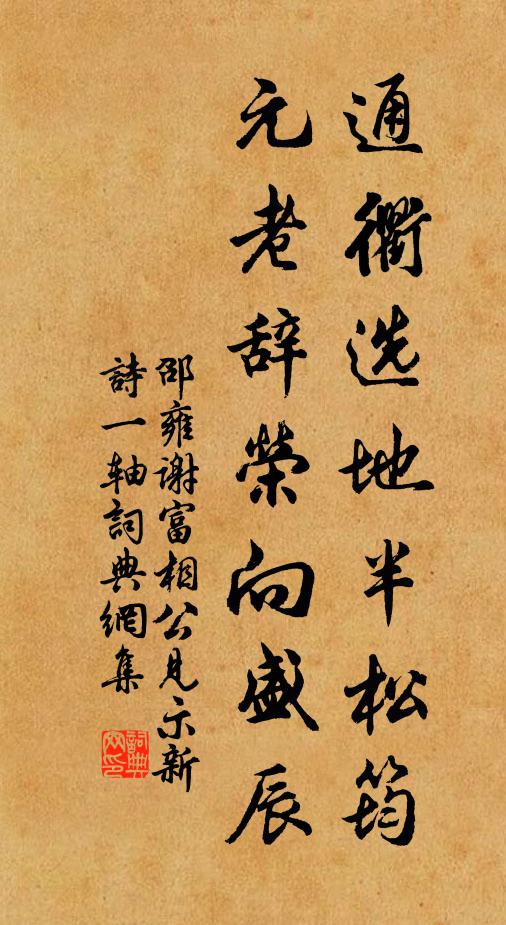 通衢选地半松筠
元老辞榮向盛辰
邵雍谢富相公見示新
詩一轴詞典網集
詞典
网印